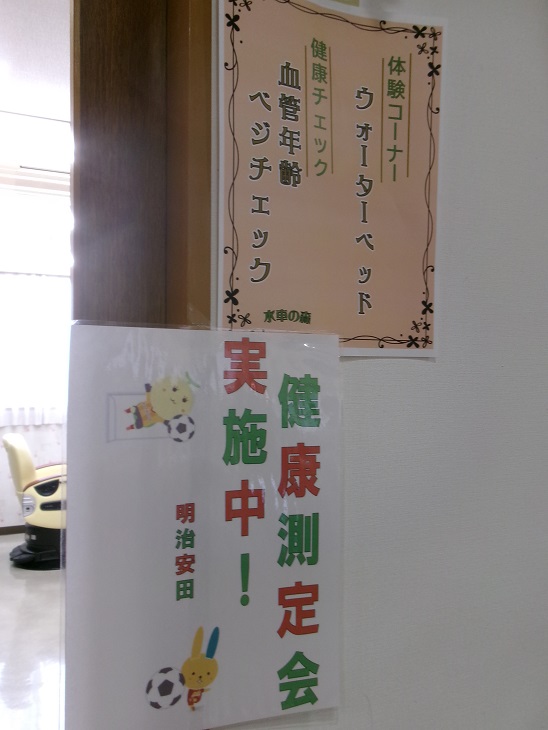 体験コーナー
ウォーターベッド
健康チェック
血管年齢
ベジチェック
水車の宿
健康測定会
実施中！
明治安田